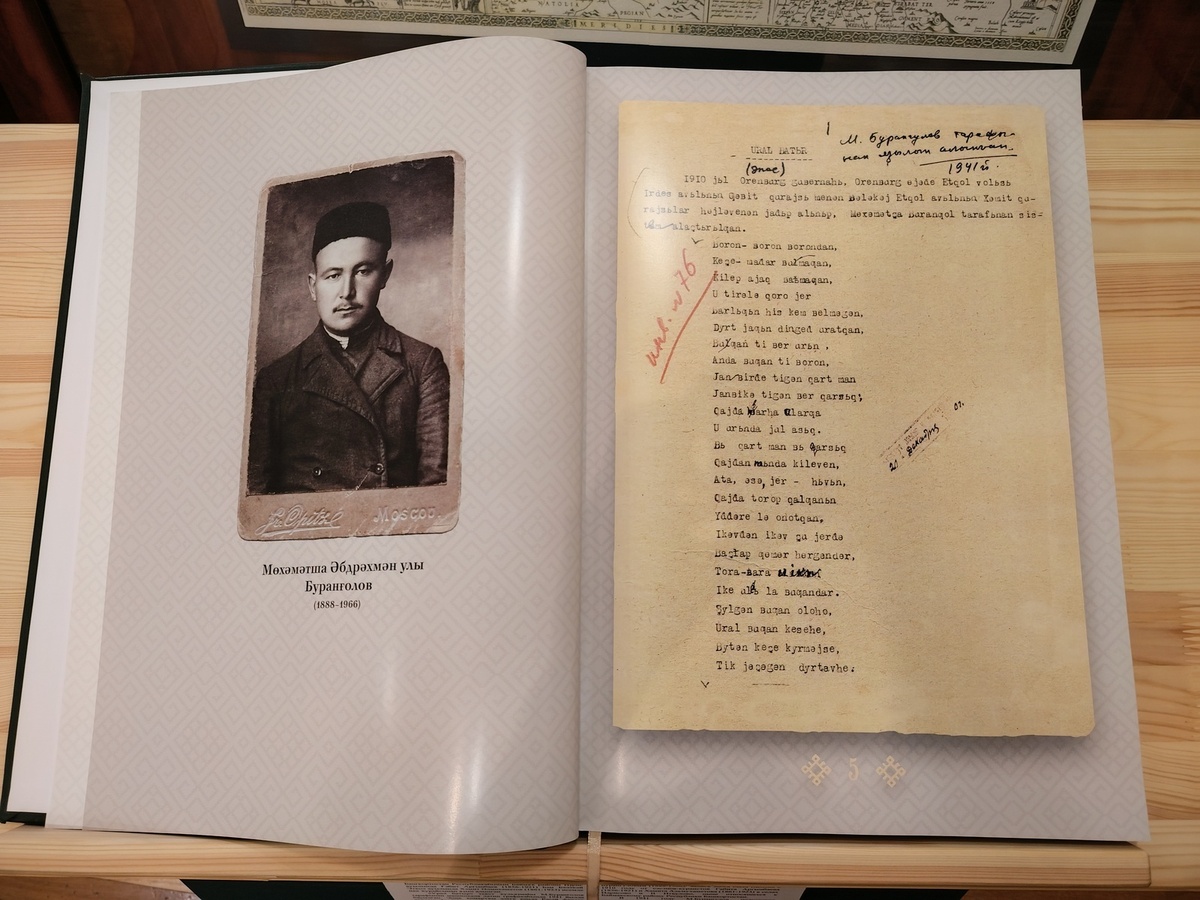 NATOLIE
Jr. Opitz.
Moscou.
Мөхәмәтша Әбдрәхмән улы
Буранғолов
(1888-1966)
1
М. Бурангулов тарафы-
нан яҙылып алынған.
1941 й.
URAL BATЬR
(эпос)
1910 jьl Orenburg gubernahь, Orenburg øjәđe Etqol volьsь
Irdes avьlьnьn Qәbit qurajsь menәn Belәkәj Etqol avьlьnьn Xәmit qu-
rajsьlar hөjlәvenәn jađьp alьnьp, Mөxәmәtşa Buranqol tarafьnan sis-
alaştьrьlqan.
инв. № 76
Boron- boron borondan,
Keşe- mađar bulmaqan,
Kilep ajaq baśmaqan,
U tirәlә qoro jer
Barlьqьn his kem belmәgәn,
Dyrt jaqьn diŋgeđ uratqan,
Bulqan ti ber urьn ,
Anda buqan ti boron,
Janbirđe tigәn qart man
Janbikә tigәn ber qarsьq,
Qajda barha ularqa
U urьnda jul asьq.
Bь qart man bь qarsьq
Qajdan unda kileven,
Ata, әsә, jer - hьvьn,
Qajda torop qalqanьn
Yđđәre lә onotqan,
Ikevdәn ikev şu jerđә
Başlap qømer hørgәndәr,
Tora-bara
Ike ulь la buqandar.
Şylgәn buqan oloho,
Ural buqan kesehe,
Bytәn keşe kyrmәjse,
Tik jәşәgәn dyrtәvhe.
5